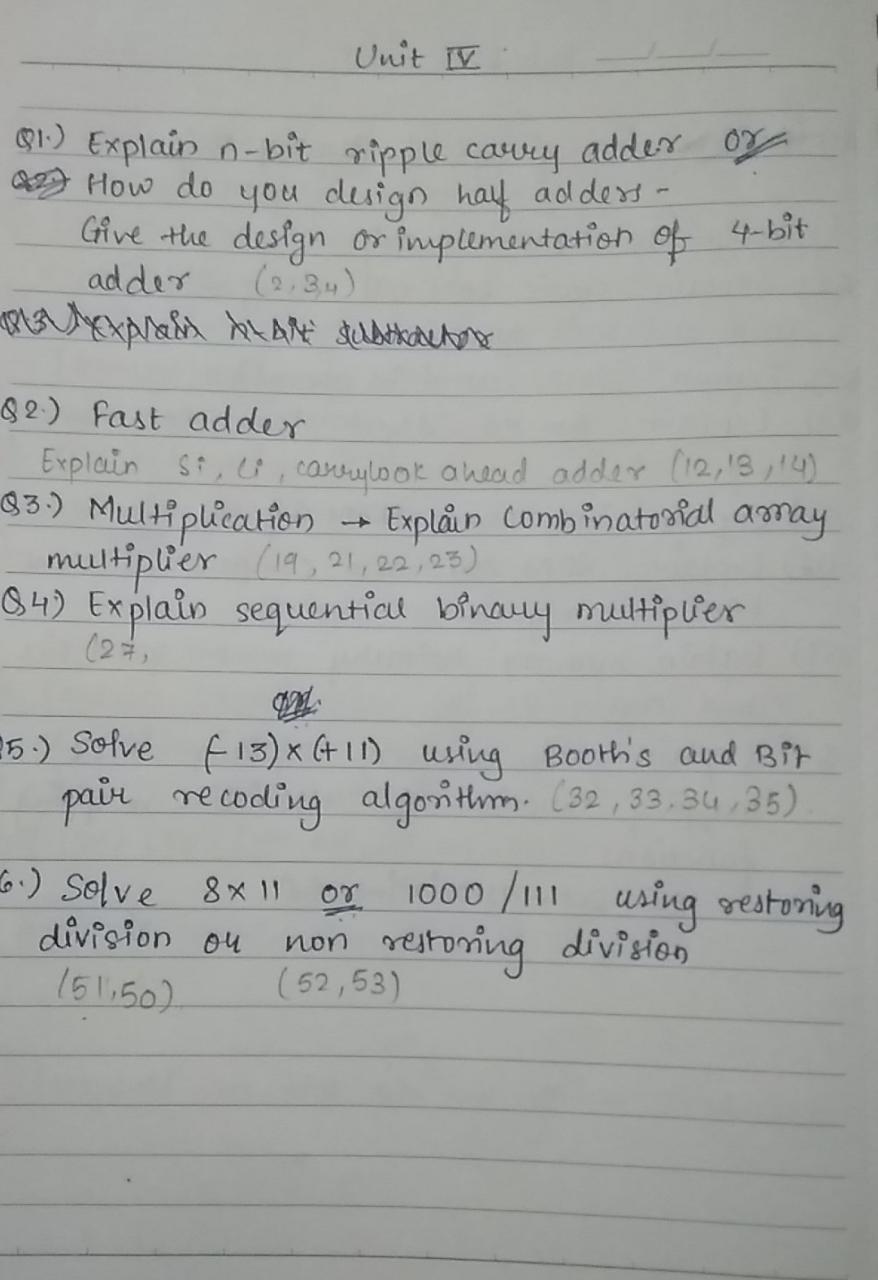 Unit IV
Q1.) Explain n-bit ripple carry adder or
How do you design half adders -
Give the design or implementation of 4-bit
adder (2,3,4)
Explain n-bit subtractor
Q2.) Fast adder
Explain Si, Ci, carrylook ahead adder (12,13,14)
Q3.) Multiplication → Explain Combinatorial array
multiplier (19, 21, 22, 23)
Q4) Explain sequential binary multiplier
(27,
5.) Solve (-13) x (+11) using Booth's and Bit
pair recoding algorithm. (32, 33, 34, 35)
6.) Solve 8 x 11 or 1000/111 using restoring
division or non restoring division
(51,50) (52,53)